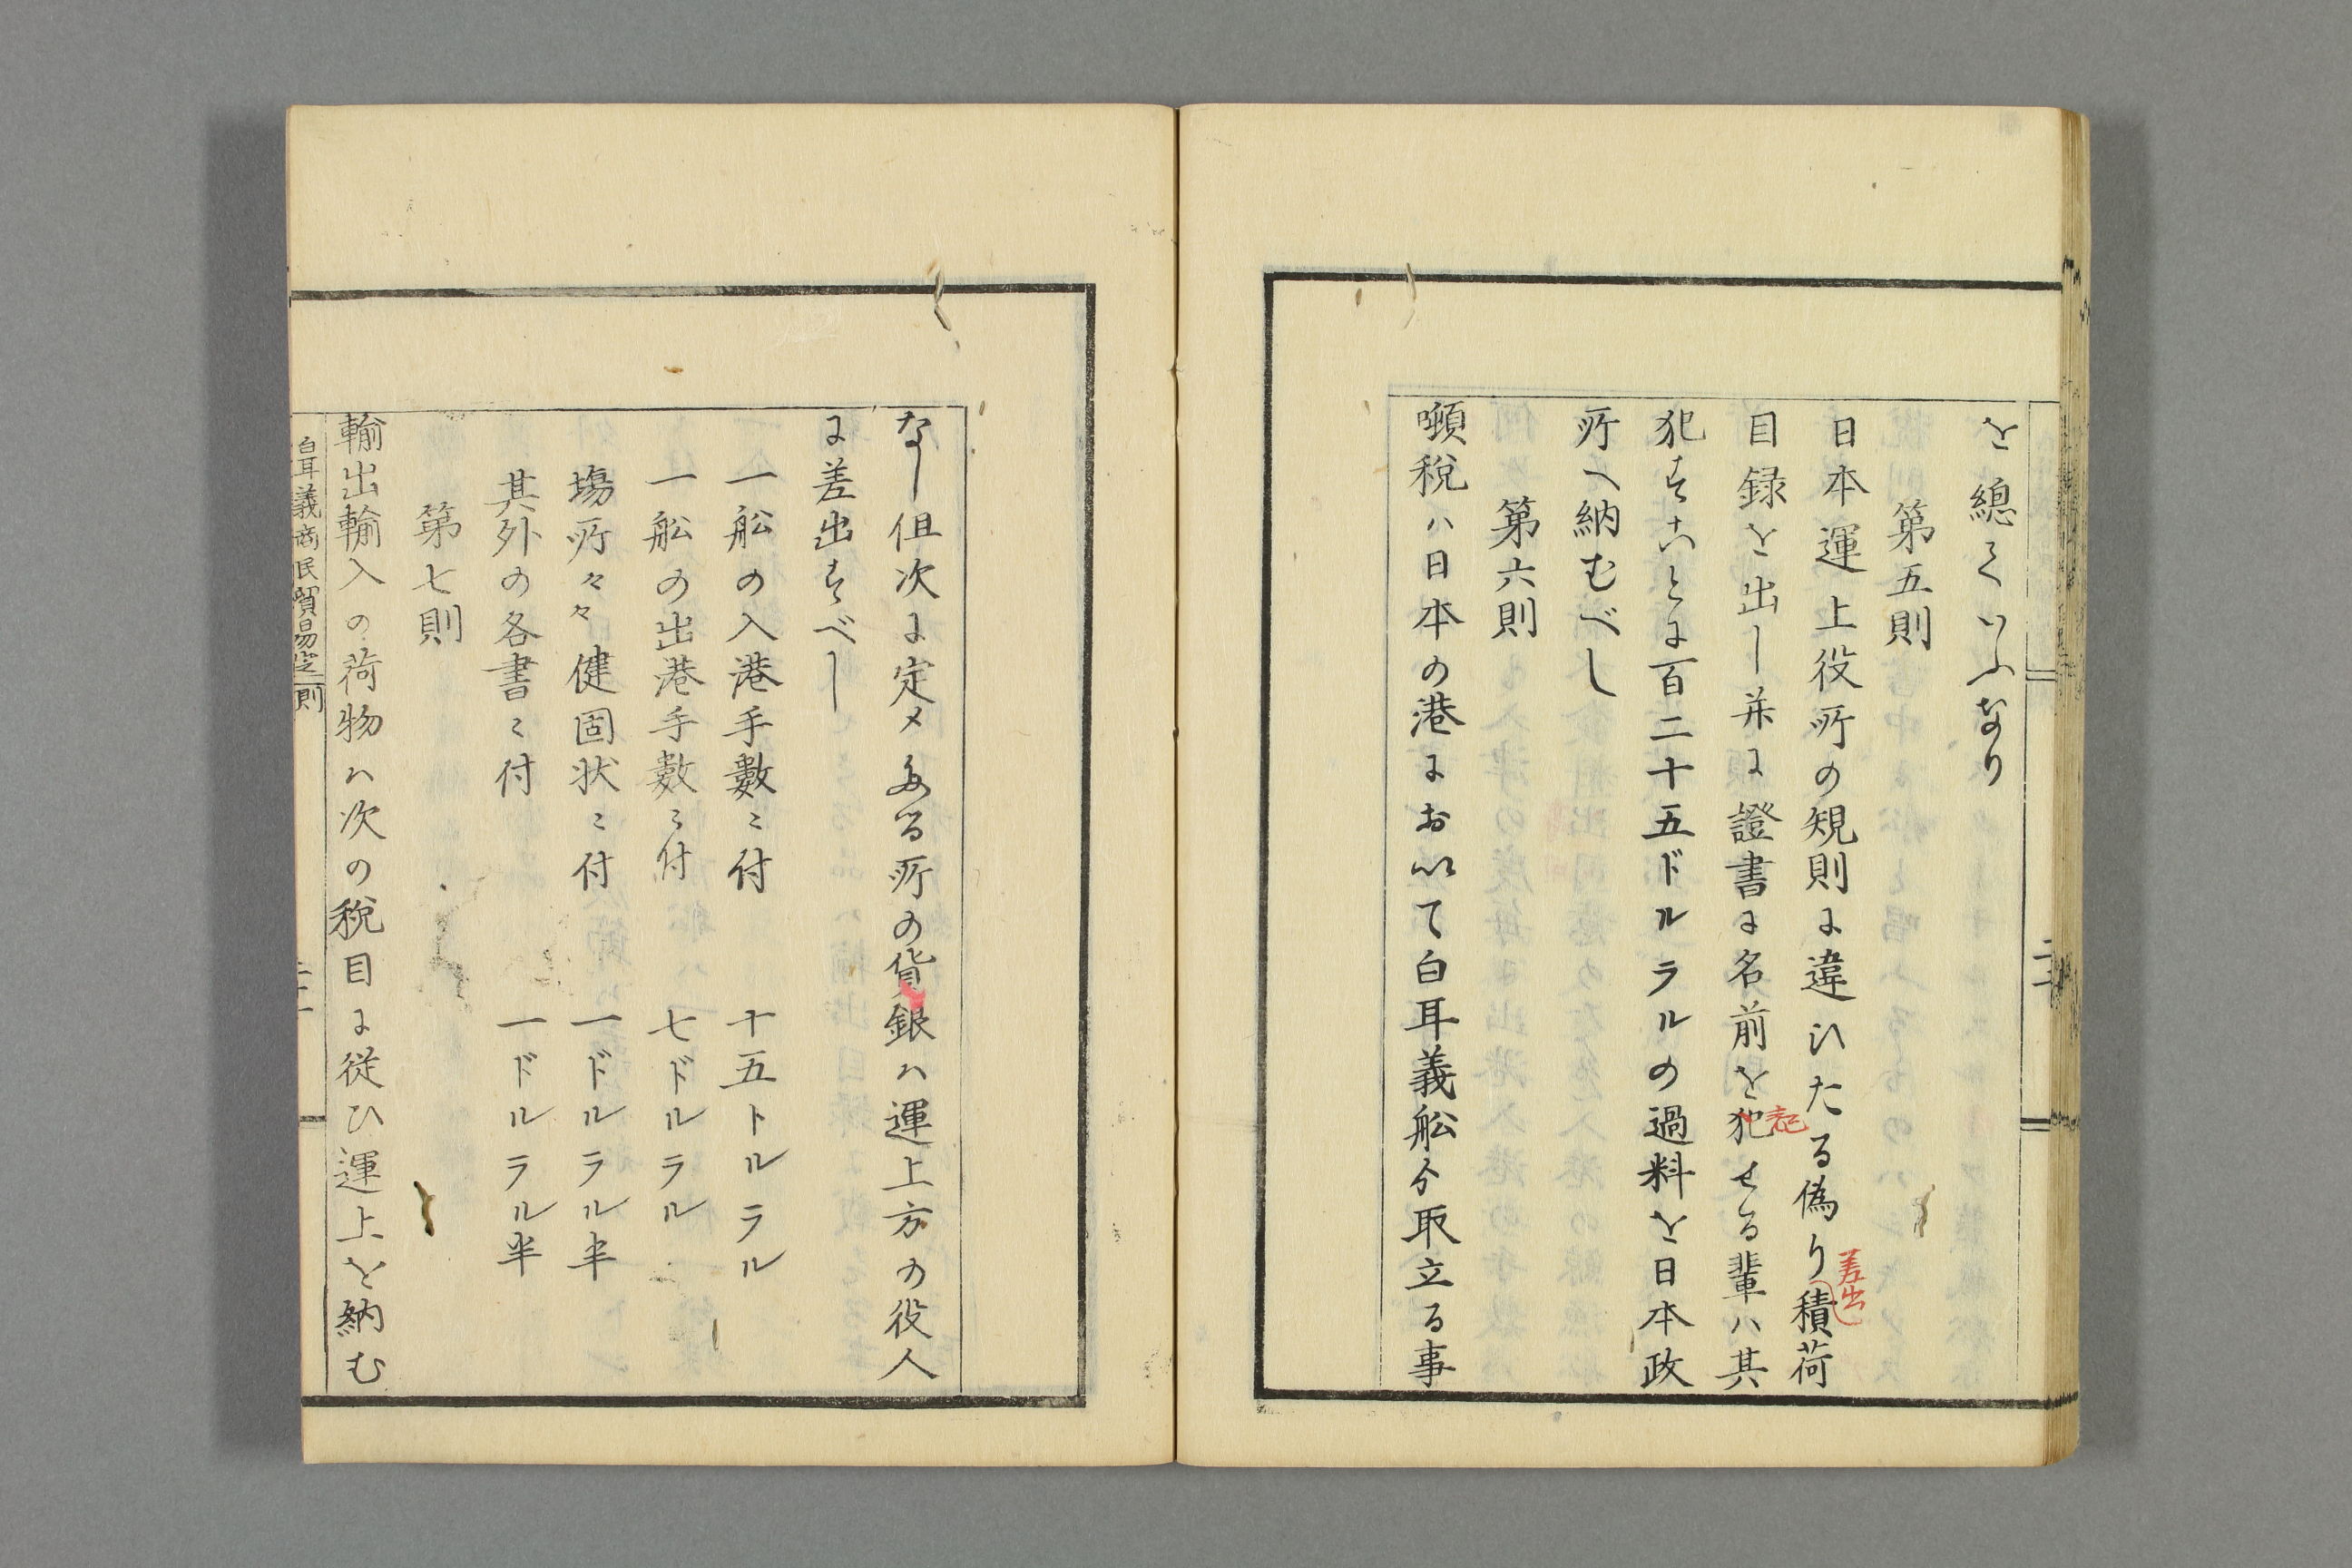 を總ていふなり
第五則
日本運上役所の規則に違ひたる偽り積荷
差出
目録を出し并に證書に名前を犯せる輩ハ其
記
犯すことに百二十五ドルラルの過料を日本政
所へ納むべし
第六則
噸税ハ日本の港におゐて白耳義舩ゟ取立る事
なし但次に定メある所の貨銀ハ運上方の役人
に差出すべし
一舩の入港手數ニ付 十五トルラル
一舩の出港手數ニ付 七ドルラル
塲所々々健固状ニ付 一ドルラル半
其外の各書ニ付 一ドルラル半
第七則
輸出輸入の荷物ハ次の税目に従ひ運上を納む
白耳義商民貿易定則